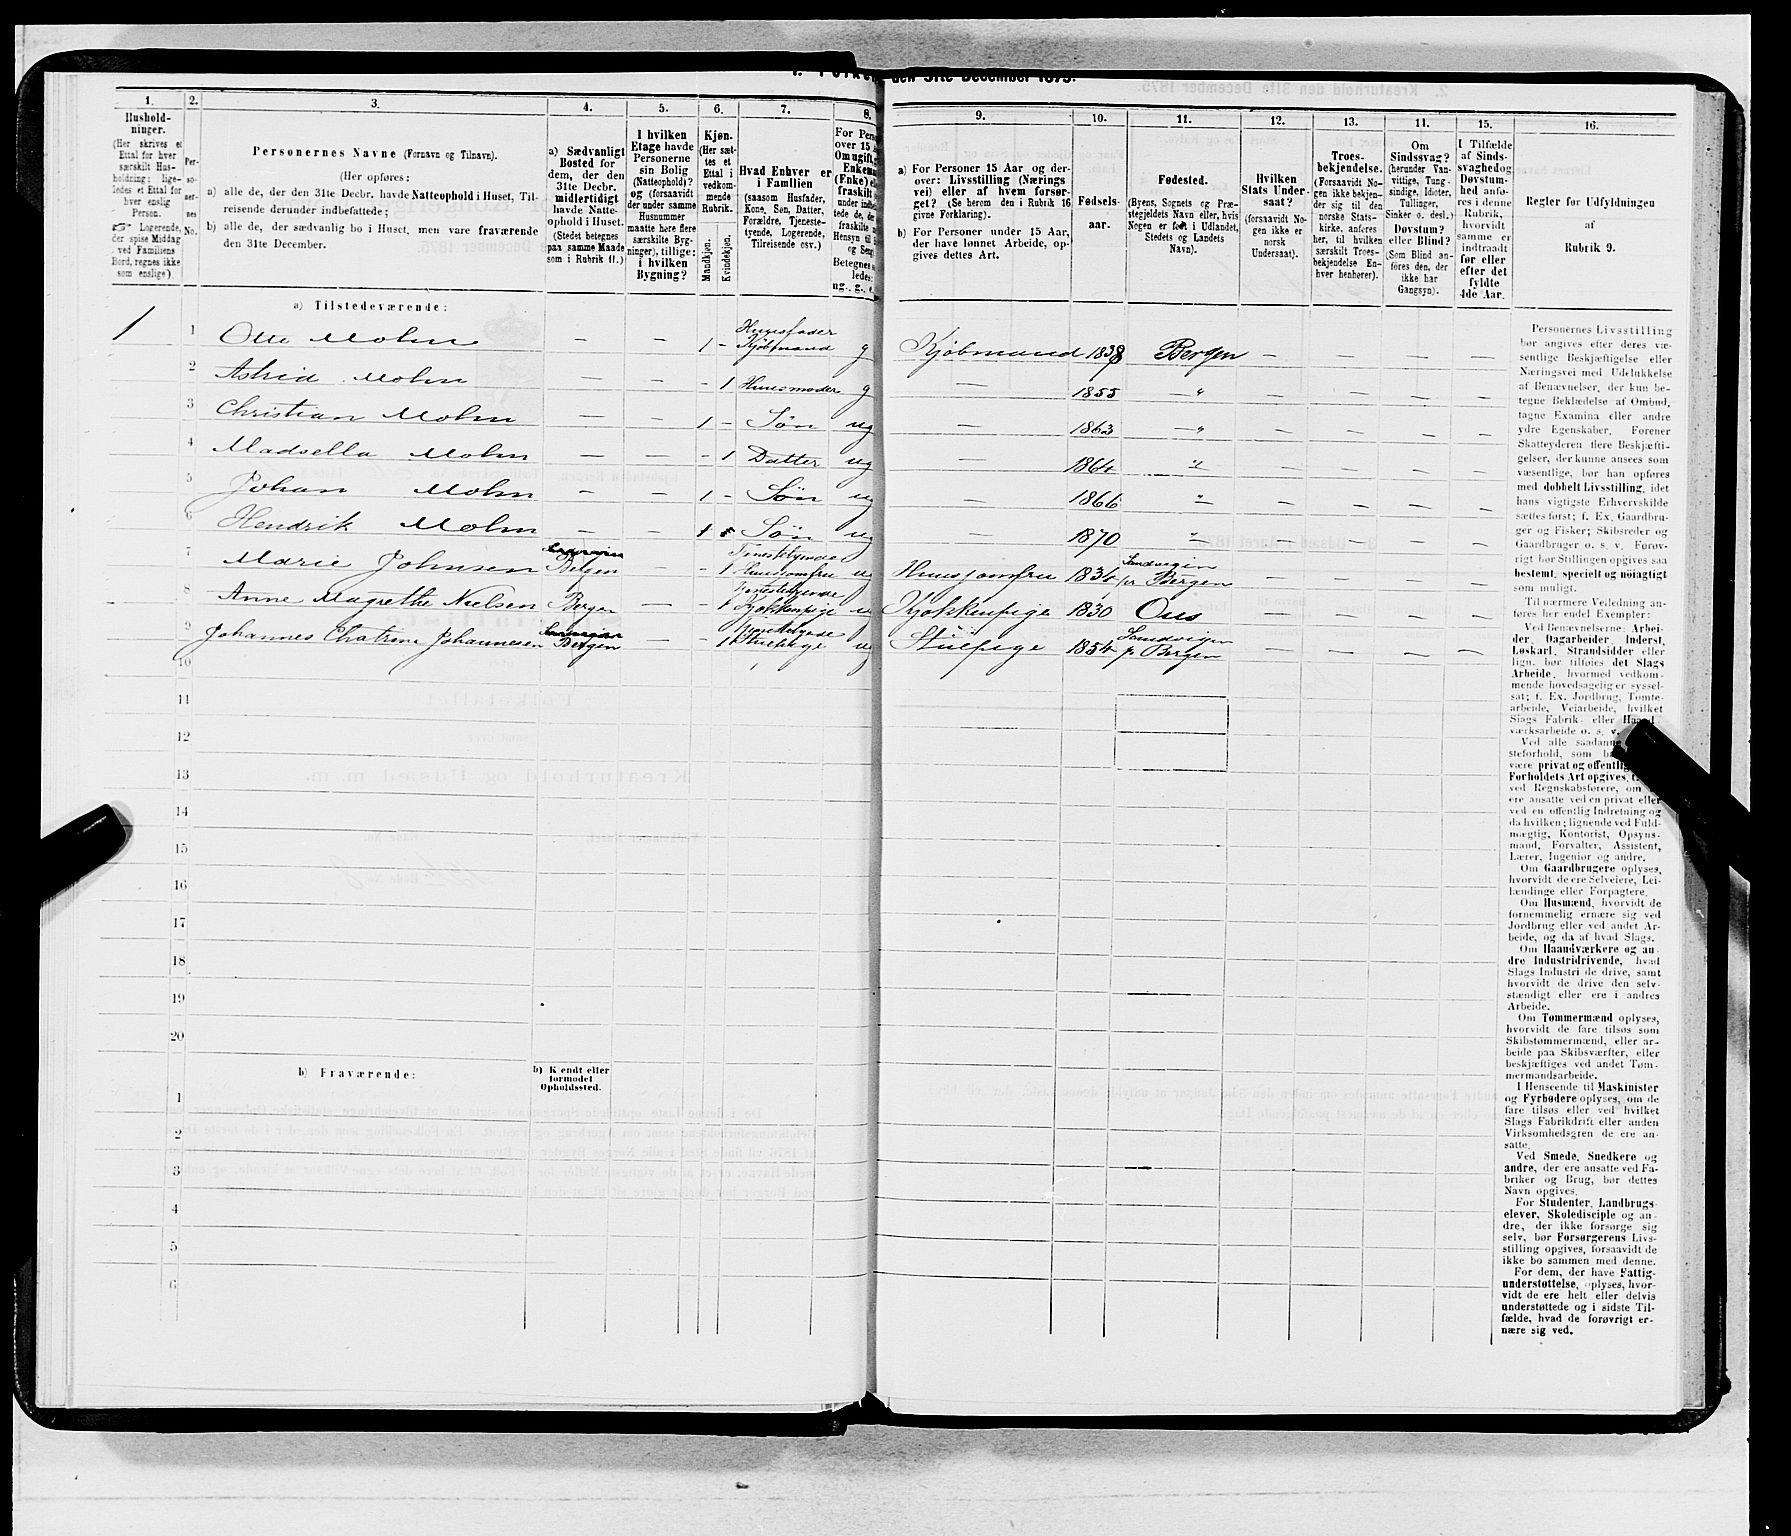 den 31te December 1875.
1.
2.
3.
4.
5.
6.
7.
8.
9.
10.
11.
12.
13.
14.
15.
16.
Hushold-
ninger.
(Her skrives et
Ettal for hver
særskilt Hus-
holdning; lige-
ledes et Ettal for
hver enslig
Person.
☞ Logerende,
der spise Middag
ved Familiens
Bord, regnes ikke
som enslige).
Per-
so-
ner-
nes
No.
Personernes Navne (Fornavn og Tilnavn).
(Her opføres:
a) alle de, der den 31te Decbr. havde Natteophold i Huset, Til-
reisende derunder indbefattede;
b) alle de, der sædvanlig bo i Huset, men vare fraværende
den 31te December.
a) Sædvanligt
Bosted for
dem, der den
31te Decbr.
midlertidigt
havde Natte-
ophold i Huset.
(Stedet betegnes
paa samme Maade
som i Rubrik 11.)
I hvilken
Etage havde
Personerne
sin Bolig
(Natteophold)?
og (forsaavidt
der under samme
Husnummer
maatte høre flere
særskilte Byg-
ninger), tillige:
i hvilken
Bygning?
Kjøn.
(Her sæt-
tes et
Ettal i
vedkom-
mende
Rubrik.
Mandkjøn.
Kvindekjøn.
Hvad Enhver er
i Familien
(saasom Husfader,
Kone, Søn, Datter,
Forældre, Tjeneste-
tyende, Logerende,
Tilreisende osv.)
For Pers
over 15 A
Om ugift,
Enkema
(Enke) el
fraskilt
under indbe
tede de, de
fraskilte
Hensyn til
og Seng
Betegnes s
ledes:
ug., g., e.
a) For Personer 15 Aar og der-
over: Livsstilling (Nærings
vei) eller af hvem forsør-
get? (Se herom den i Rubrik 16
givne Forklaring).
b) For Personer under 15 Aar,
der have lønnet Arbeide, op-
gives dettes Art.
Fødsels-
aar.
Fødested.
(Byens, Sognets og Præ-
stegjeldets Navn eller, hvis
Nogen er født i Udlandet,
Stedets og Landets
Navn).
Hvilken
Stats Under-
saat?
(forsaavidt No-
gen ikke er
norsk
Undersaat).
Troes-
bekjendelse.
(Forsaavidt No-
gen ikke bekjen-
der sig til den
norske Stats-
kirke, anføres
her, til hvilken
særskilt Troes-
bekjendelse En-
hver henhører).
Om
Sindssvag?
(herunder Van-
vittige, Tung-
sindige, Idioter,
Tullinger,
Sinker o. desl.)
Døvstum?
eller Blind?
(Som Blind an-
føres den, der
ikke har
Gangsyn).
I Tilfælde
af Sinds-
svaghed og
Døvstum-
hed anfø-
res i denne
Rubrik,
hvorvidt
samme er
indtraadt
før eller
efter det
fyldte
4de Aar.
Regler for Udfyldningen
af
Rubrik 9.
a) Tilstedeværende:
1 1 Otto Mohn – – 1 – Huusfader Kjøbmand g Kjøbmand 1838 Bergen – – – –
2 Astrid Mohn – – – 1 Huusmoder g – 1855 – " – – – –
3 Christian Mohn – – 1 – Søn ug – 1863 – " – – – –
4 Madsella Mohn – – – 1 Datter ug – 1864 – " – – – –
5 Johan Mohn – – 1 – Søn ug – 1866 – " – – – –
6 Hendrik Mohn – – 1 Søn ug – 1870 – " – – – –
7 Marie Johnsen Bergen – – 1 Tjenestetyende Huusjomfru ug Huusjomfru 1834 Sandvigen pr Bergen – – – –
8 Anne Magrethe Nielsen Bergen – – 1 Tjenestetyende Kjøkkenpige ug Kjøkkenpige 1830 Ous – – – –
9 Johannes Chatrine Johannesen Bergen – – 1 Tjenestetyende Stuepige ug Stuepige 1854 Sandvigen pr Bergen – – – –
10
11
12
13
14
15
16
17
18
19
20
b) Fraværende:
b) Kjendt eller
formodet
Opholdssted.
1
2
3
4
5
6
Personernes Livsstilling
bør angives efter deres væ-
sentlige Beskjæftigelse eller
Næringsvei med Udelukkelse
af Benævnelser, der kun be-
tegne Beklædelse af Ombud,
tagne Examina eller andre
ydre Egenskaber. Forener
Skatteyderen flere Beskjæfti-
gelser, der kunne ansees som
væsentlige, bør han opføres
med dobbelt Livsstilling, idet
hans vigtigste Erhvervskilde
sættes først; f. Ex. Gaardbru-
ger og Fisker; Skibsreder og
Gaardbruger o. s. v. Forøv-
rigt bør Stillingen opgives saa
bestemt, specielt og nøiagtigt
som muligt.
Til nærmere Veiledning an-
føres her endel Exempler:
Ved Benævnelserne: Arbei-
der, Dagarbeider, Inderst,
Løskarl, Strandsidder eller
lign. bør tilføies det Slags
Arbeide, hvormed vedkom-
mende hovedsagelig er syssel-
sat; f. Ex. Jordbrug, Tomte-
arbeide, Veiarbeide, hvilket
Slags Fabrik- eller Haand
værksarbeide o. s. v.
Ved alle saadanne
steforhold, som b
være privat og offentlig
Forholdets Art opgives,
ved Regnskabsførere, om
ere ansatte ved en privat eller
ved en offentlig Indretning og
da hvilken; lignende ved Fuld-
mægtig, Kontorist, Opsyns-
mand, Forvalter, Assistent,
Lærer, Ingeniør og andre.
Om Gaardbrugere oplyses,
hvorvidt de ere Selveiere, Lei-
lændinge eller Forpagtere.
Om Husmænd, hvorvidt de
fornemmelig ernære sig ved
Jordbrug eller ved andet Ar-
beide, og da af hvad Slags.
Om Haandværkere og an-
dre Industridrivende, hvad
Slags Industri de drive, samt
hvorvidt de drive den selv-
stændigt eller ere i andres
Arbeide.
Om Tømmermænd oplyses,
hvorvidt de fare tilsøs som
Skibstømmermænd, eller ar-
beide paa Skibsværfter, eller
beskjæftiges ved andet Tøm-
mermandsarbeide.
I Henseende til Maskinister
og Fyrbødere oplyses, om de
fare tilsøs eller ved hvilket
Slags Fabrikdrift eller anden
Virksomhedsgren de ere an-
satte.
Ved Smede, Snedkere og
andre, der ere ansatte ved Fa-
briker og Brug, bør dettes
Navn opgives.
For Studenter, Landbrugs-
elever, Skoledisciple og an-
dre, der ikke forsørge sig
selv, bør Forsørgerens Livs-
stilling opgives, forsaavidt de
ikke bo sammen med denne.
For dem, der have Fattig-
understøttelse, oplyses, hvor-
vidt de ere helt eller delvis
understøttede og i sidste Til-
fælde, hvad de forøvrigt er-
nære sig ved.